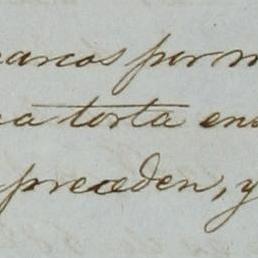 arcos por m
a torta en
preceden, y